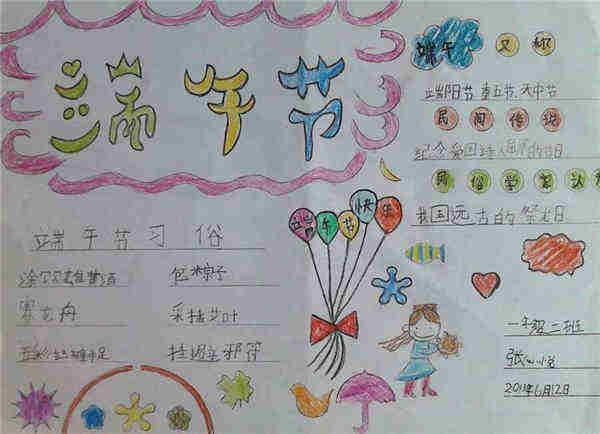 端午节
端午 又称
端阳节 重五节、天中节
民间传说
纪念爱国诗人屈原的节日
民俗学家认
我国远古的祭龙日
端午节快乐
端午节习俗
雄黄酒 包粽子
赛龙舟 采挂艾叶
五彩 足 挂避邪符
一年级二班
张
6月12日